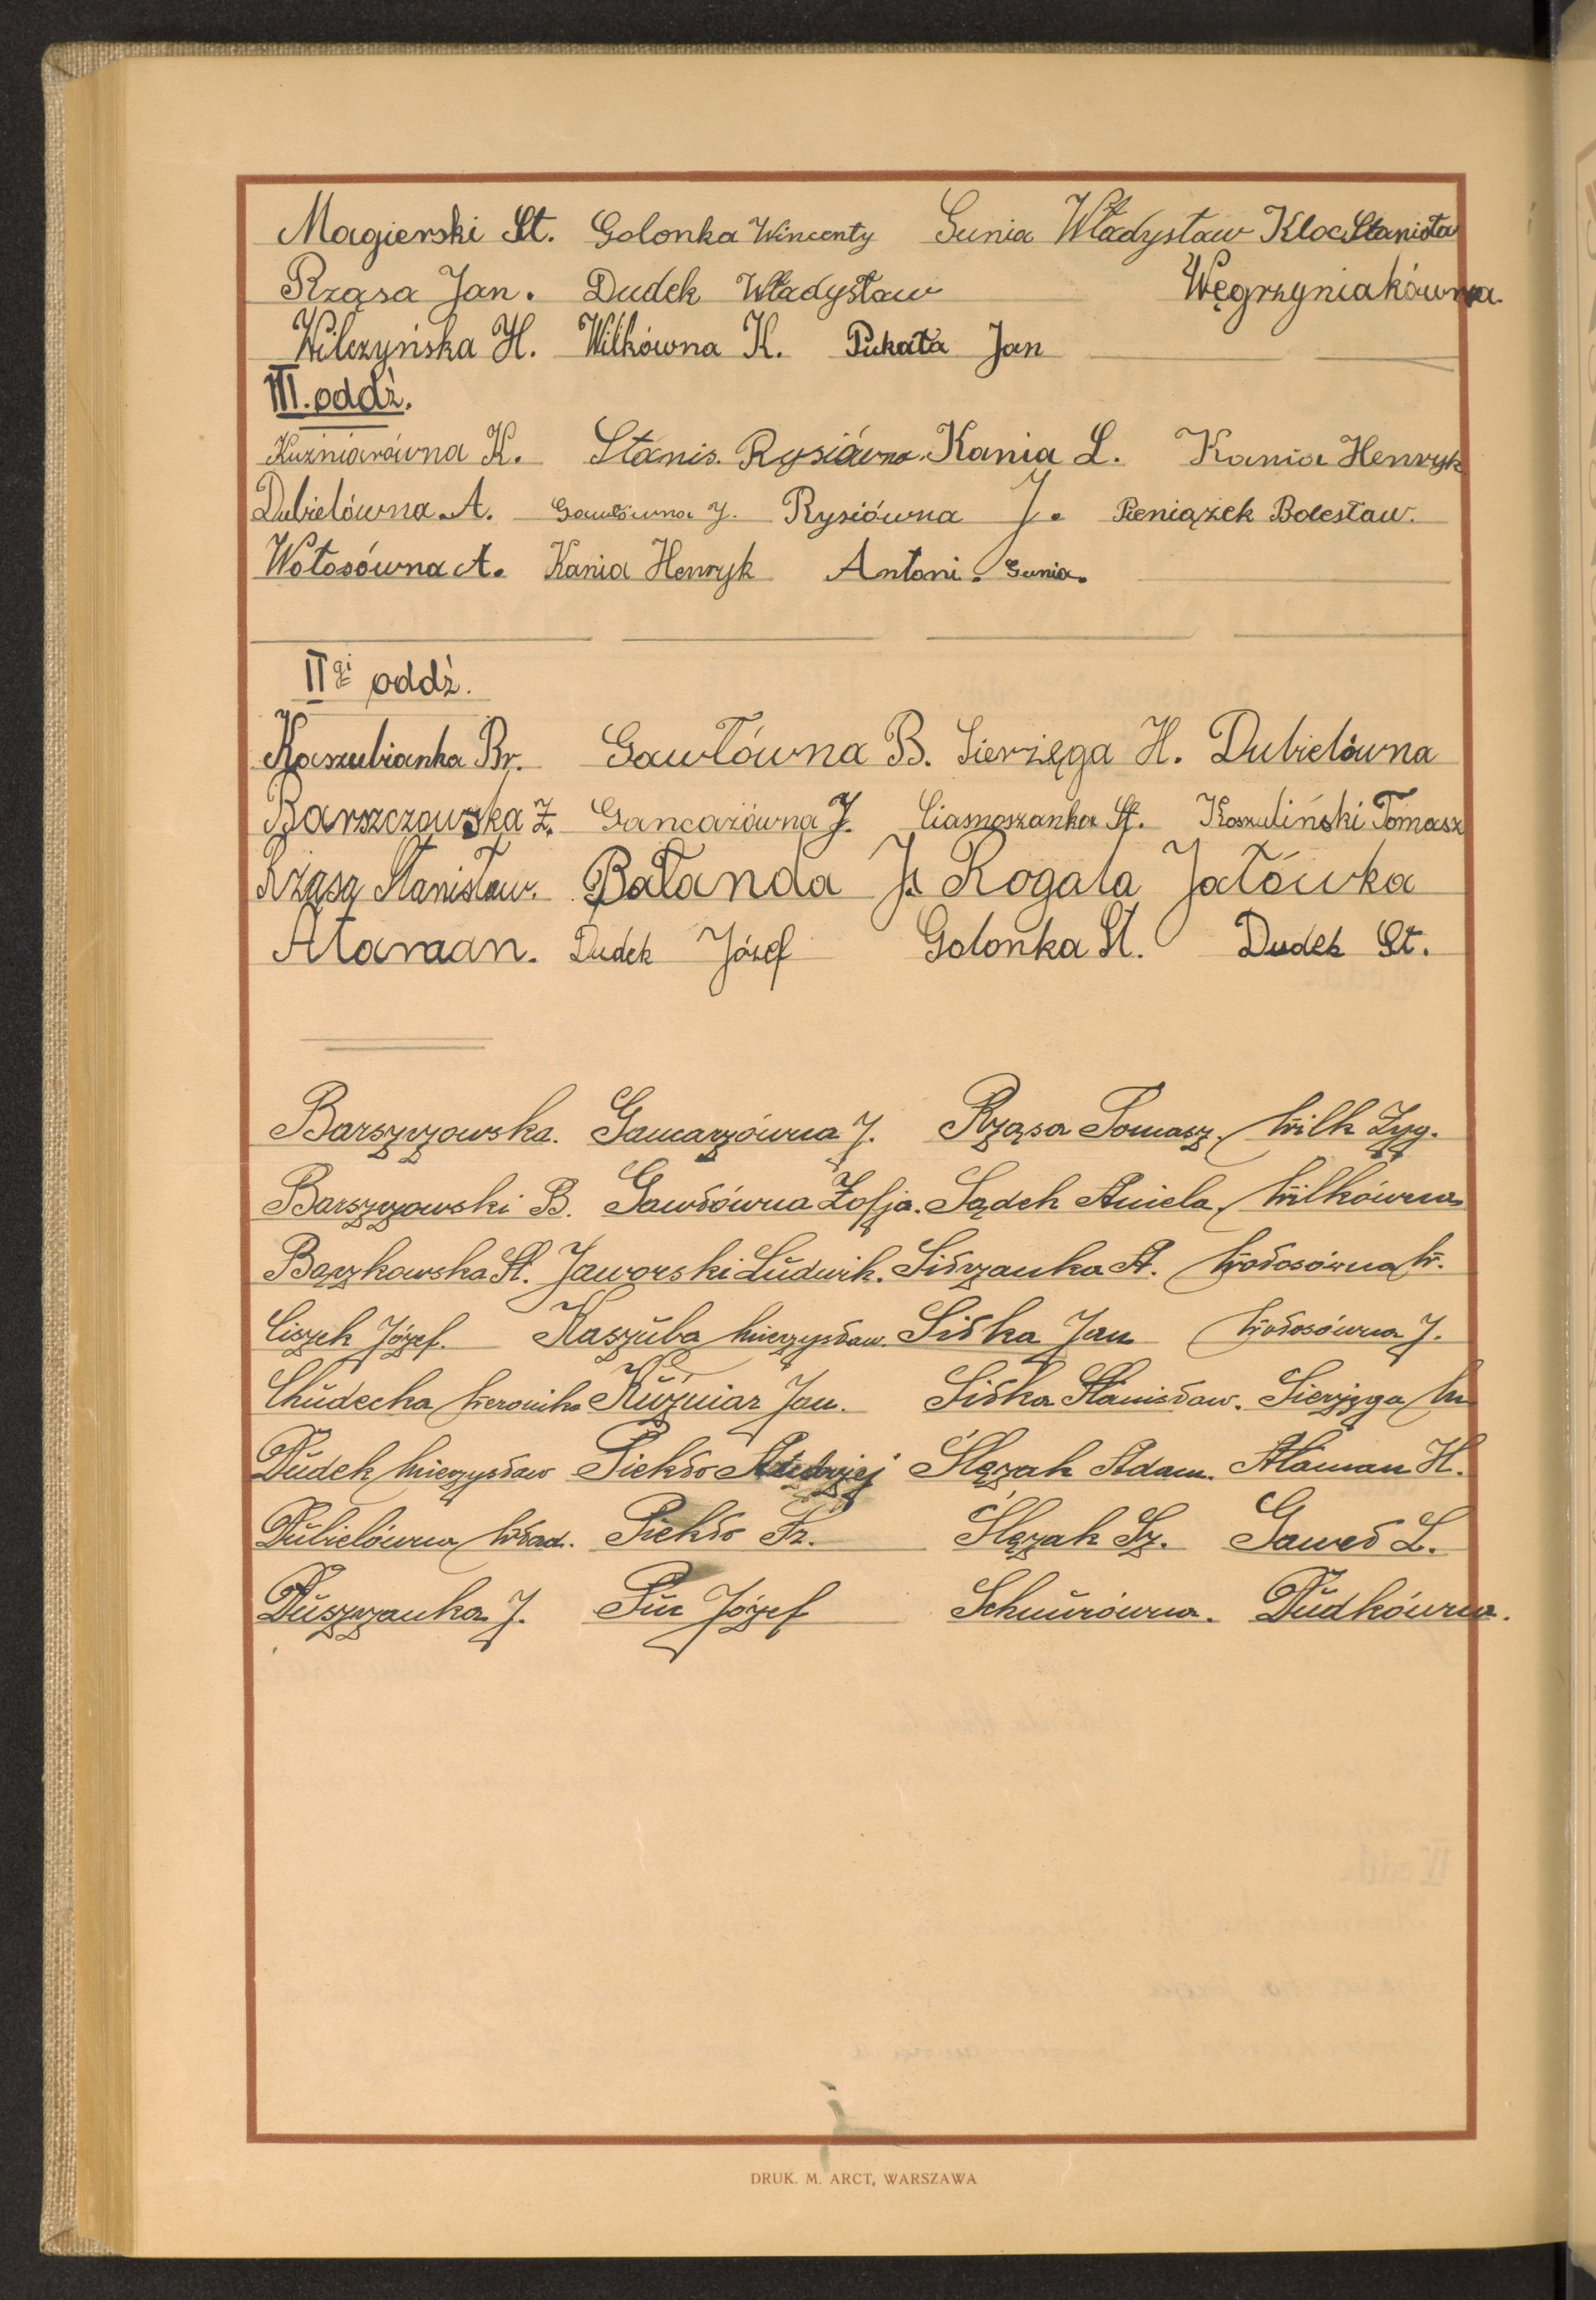 Magierski St. Golonka Wincenty Gunia Władysław Kloc Stanisła
Rząsa Jan. Dudek Władysław Węgrzyniakówna.
Wilczyńska H. Wilkówna K. Pukała Jan
III. oddz.
Kuźniarówna K. Stanis. Rysiówna. Kania L. Kania Henryk
Dubielówna. A. Gawłówna J. Rysiówna J. Pieniązek Bolesław.
Wołosówna A. Kania Henryk Antoni. Gunia.
IIgi oddź.
Kaszubianka Br. Gawłówna B. Sierżęga H. Dubielówna
Barszczowska Z. Gancarzówna J. Ciasnoszanka St. Koszuliński Tomasz
Rząsa Stanisław. Bałanda J. Rogala Jałówka
Ataman. Dudek Józef Golonka St. Dudek St.
Barszczowska. Gancarzówna J. Rząsa Tomasz. Wilk Zyg.
Barszczowski B. Gawłówna Zofja. Sądek Aniela, Wilkówna
Bączkowska St. Jaworski Ludwik. Siłczanka A. Wołosówna W.
Ciszek Józef. Kaszuba Mieczysław. Siłka Jan Wołosówna J.
Chudecka Weronika Kuźniar Jan. Siłka Stanisław. Sierżęga M
Dudek Mieczysław Piekło Andrzej Ślęzak Adam. Ataman H.
Dubielówna Wład. Piekło Fr. Ślęzak Sz. Gaweł L.
Duszczanka J. Puc Józef Schnurówna. Dudkówna.
DRUK. M. ARCT, WARSZAWA